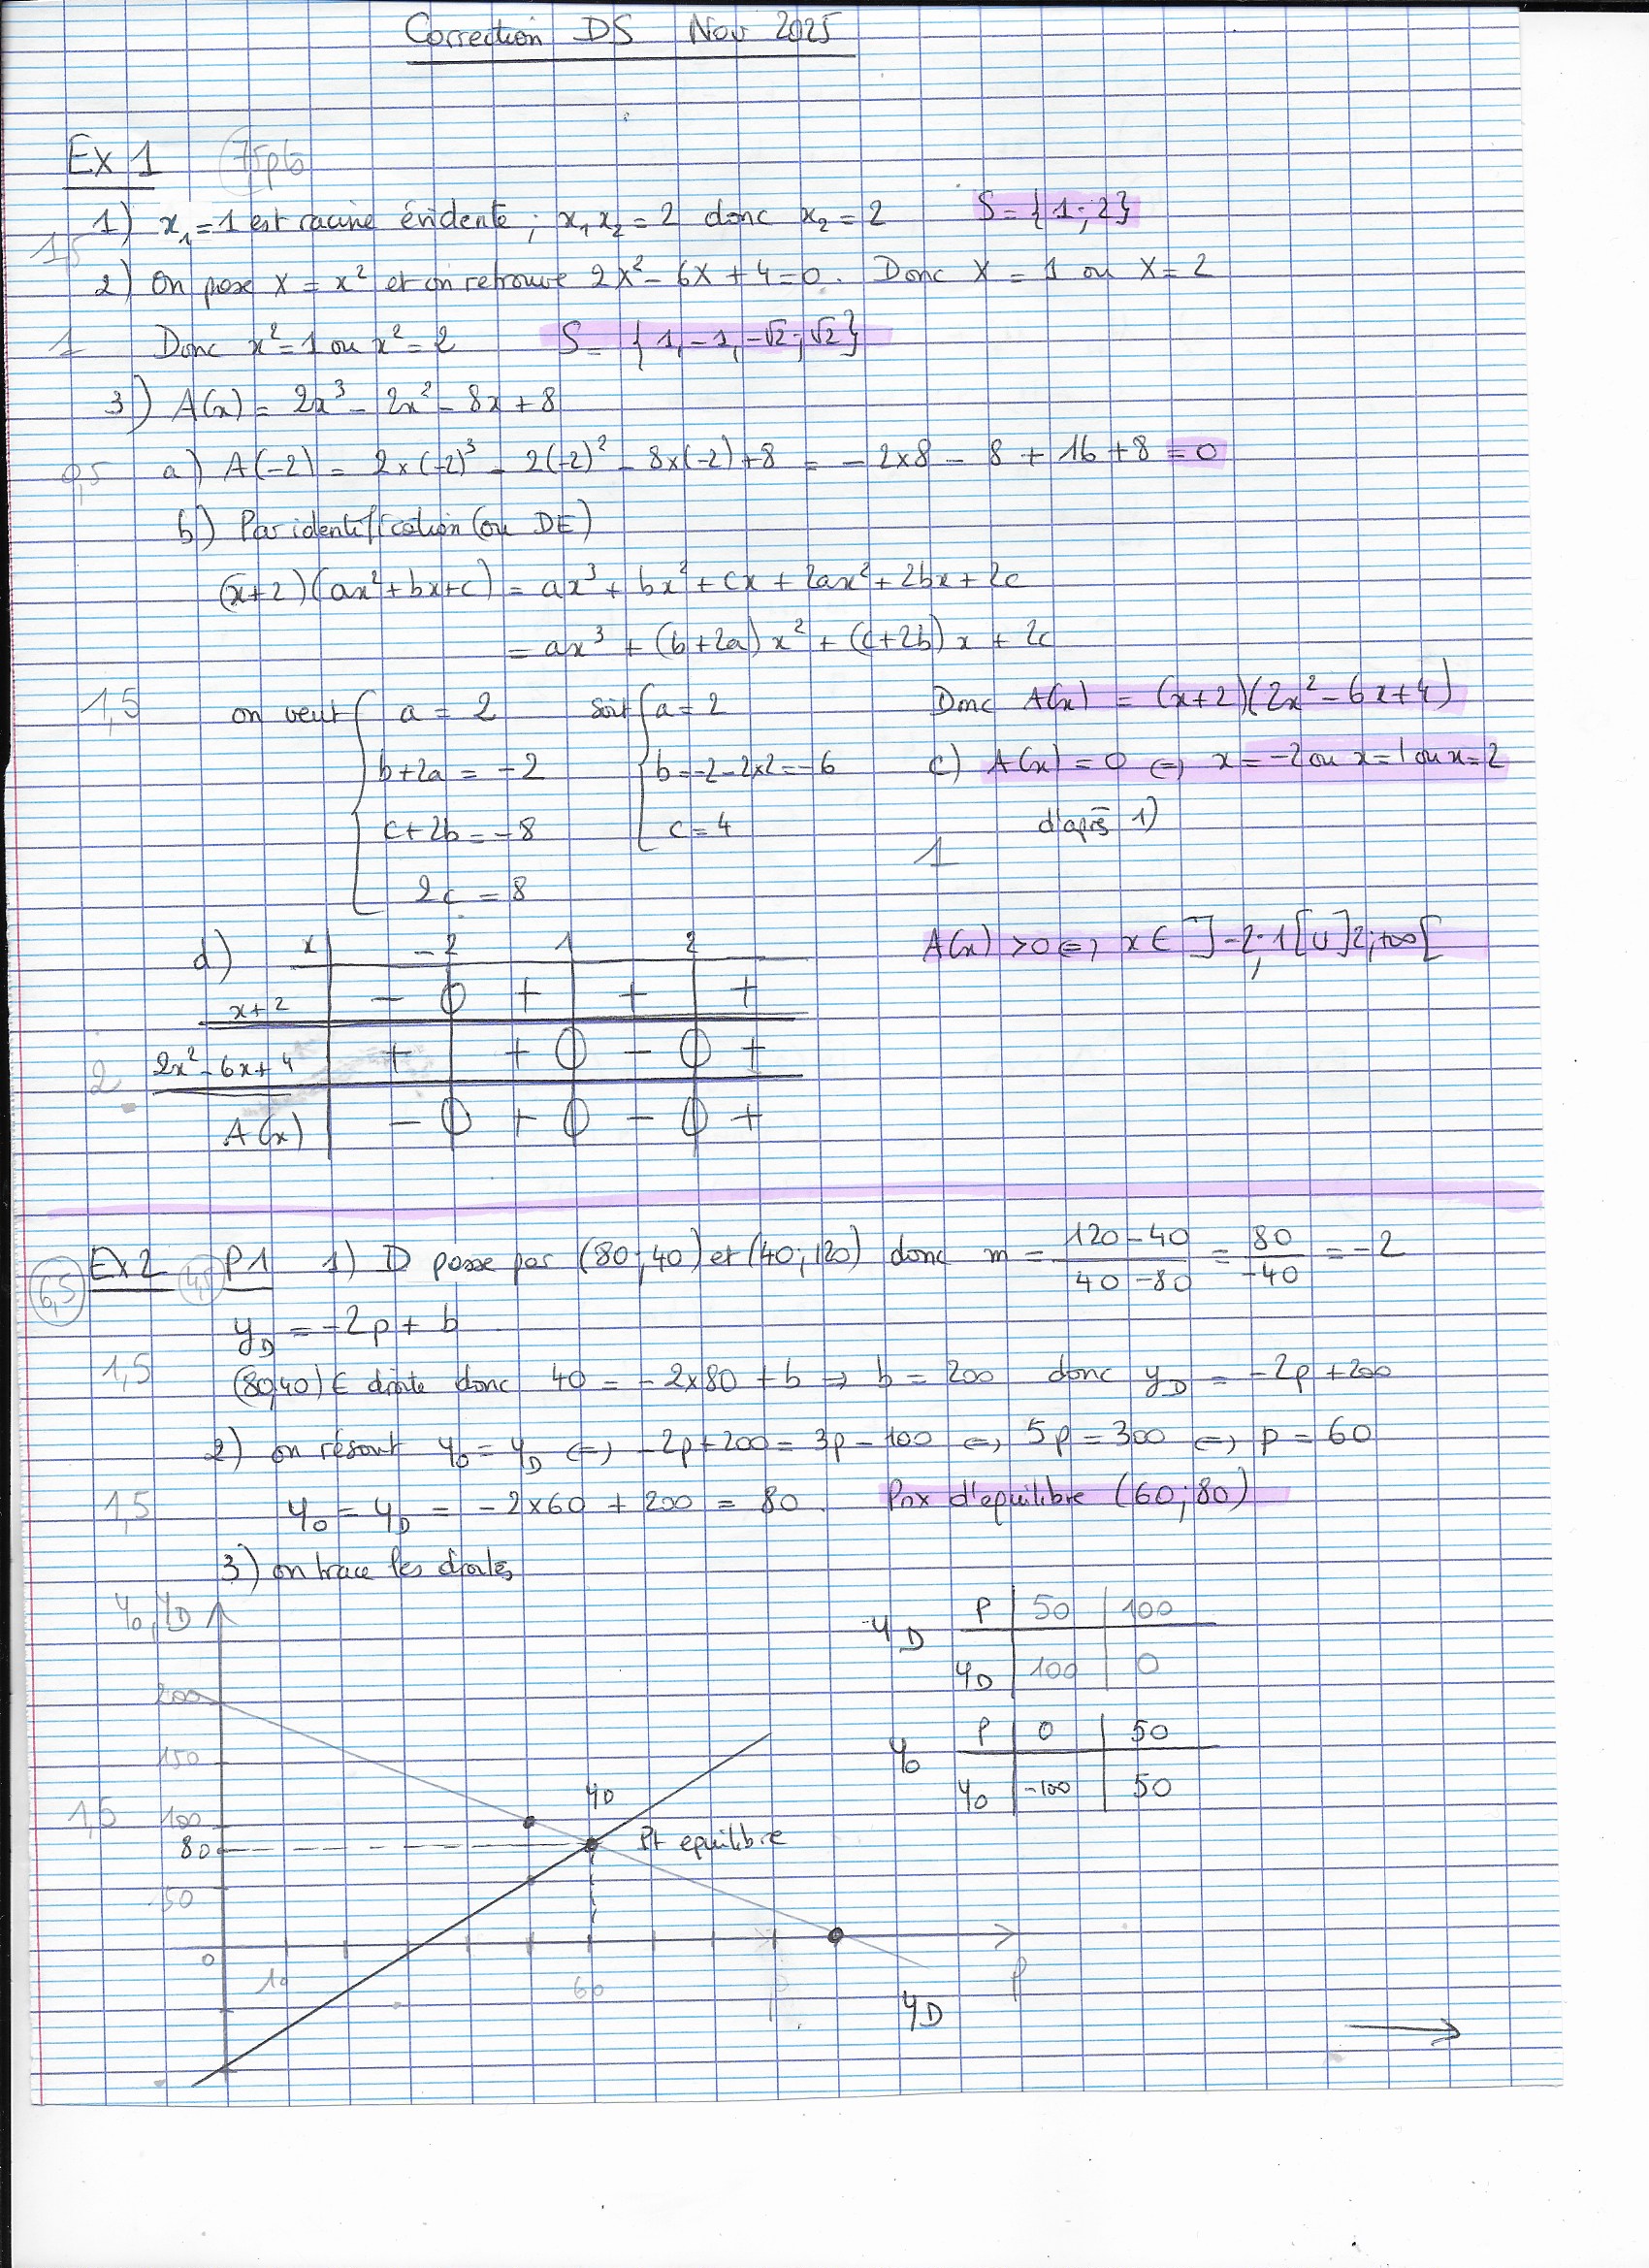 Correction DS Nov 2025
Ex 1 7,5 pts
1) x₁ = 1 est racine évidente ; x₁ x₂ = 2 donc x₂ = 2 S = { 1 ; 2 }
1,5
2) On pose X = x² et on retrouve 2X² - 6X + 4 = 0. Donc X = 1 ou X = 2
1 Donc x² = 1 ou x² = 2 S = { 1, -1, -√2 ; √2 }
3) A(x) = 2x³ - 2x² - 8x + 8
0,5 a) A(-2) = 2×(-2)³ - 2(-2)² - 8×(-2) + 8 = -2×8 - 8 + 16 + 8 = 0
b) Par identification (ou DE)
(x+2)(ax²+bx+c) = ax³ + bx² + cx + 2ax² + 2bx + 2c
= ax³ + (b+2a)x² + (c+2b)x + 2c
1,5 on veut { a = 2 soit { a = 2 Donc A(x) = (x+2)(2x² - 6x + 4)
b+2a = -2 b = -2-2×2 = -6 c) A(x) = 0 ⇔ x = -2 ou x = 1 ou x = 2
c+2b = -8 c = 4 d'après 1)
1
2c = 8
d) x -2 1 2 A(x) > 0 ⇔ x ∈ ]-2 ; 1[ ∪ ]2 ; +∞[
x+2 - 0 + + +
2 2x² - 6x + 4 + + 0 - 0 +
A(x) - 0 + 0 - 0 +
6,5 Ex 2 4,5 P1 1) D passe par (80 ; 40) et (40 ; 120) donc m = (120 - 40)/(40 - 80) = 80/-40 = -2
y_D = -2p + b
1,5 (80,40) ∈ droite donc 40 = -2×80 + b ⇒ b = 200 donc y_D = -2p + 200
2) on résout y_o = y_D ⇔ -2p + 200 = 3p - 100 ⇔ 5p = 300 ⇔ p = 60
1,5 y_o = y_D = -2×60 + 200 = 80. Prix d'equilibre (60 ; 80)
3) on trace les droites
y_o, y_D
y_D P 50 100
y_D 100 0
200
y_o P 0 50
y_o -100 50
150
y_D
1,5 100
80 Pt equilibre
50
0 10 60 P
y_D